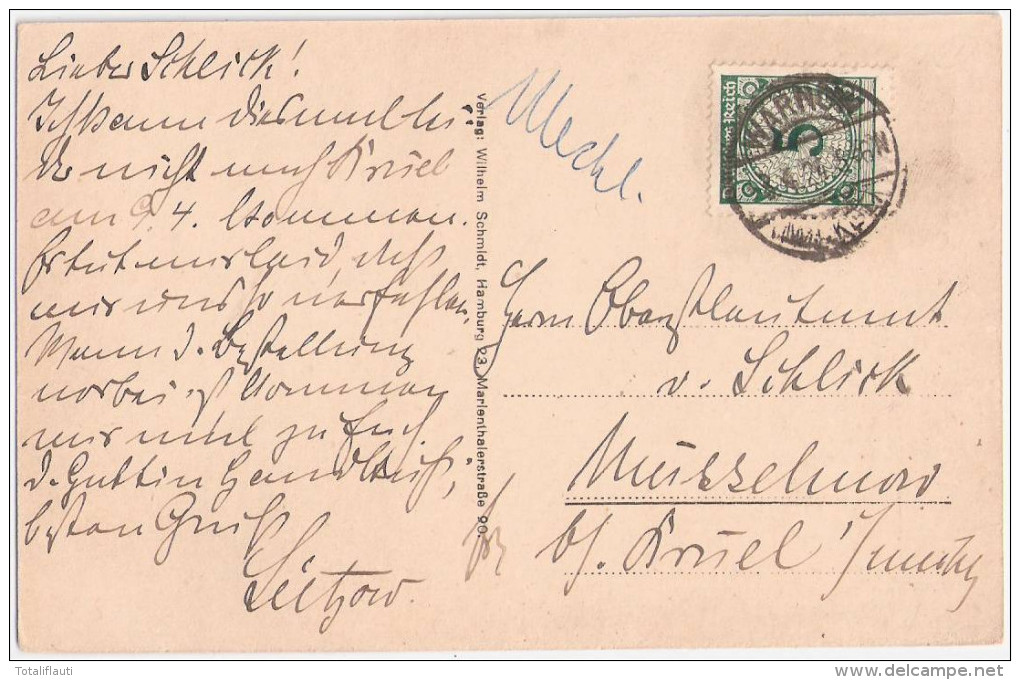 Lieber Schlick!
Ich kann diesmal lei
der nicht nach Brüel
am 9.4. kommen.
Es tut mir leid, daß
wir uns so verfehlen.
Wenn d. Bestellung
vorbei ist kommen
wir mal zu Euch.
d. Gattin Handkuß,
besten Gruß
Lützow.
Verlag: Wilhelm Schmidt, Hamburg 23, Marienthalerstraße 90
Meckl.
Deutsches Reich
5
WARNOW
24
Herrn Oberstleutnant
v. Schlick
Musselmow
bh. Brüel i/Meckl
Totaliflauti
www.delcampe.net